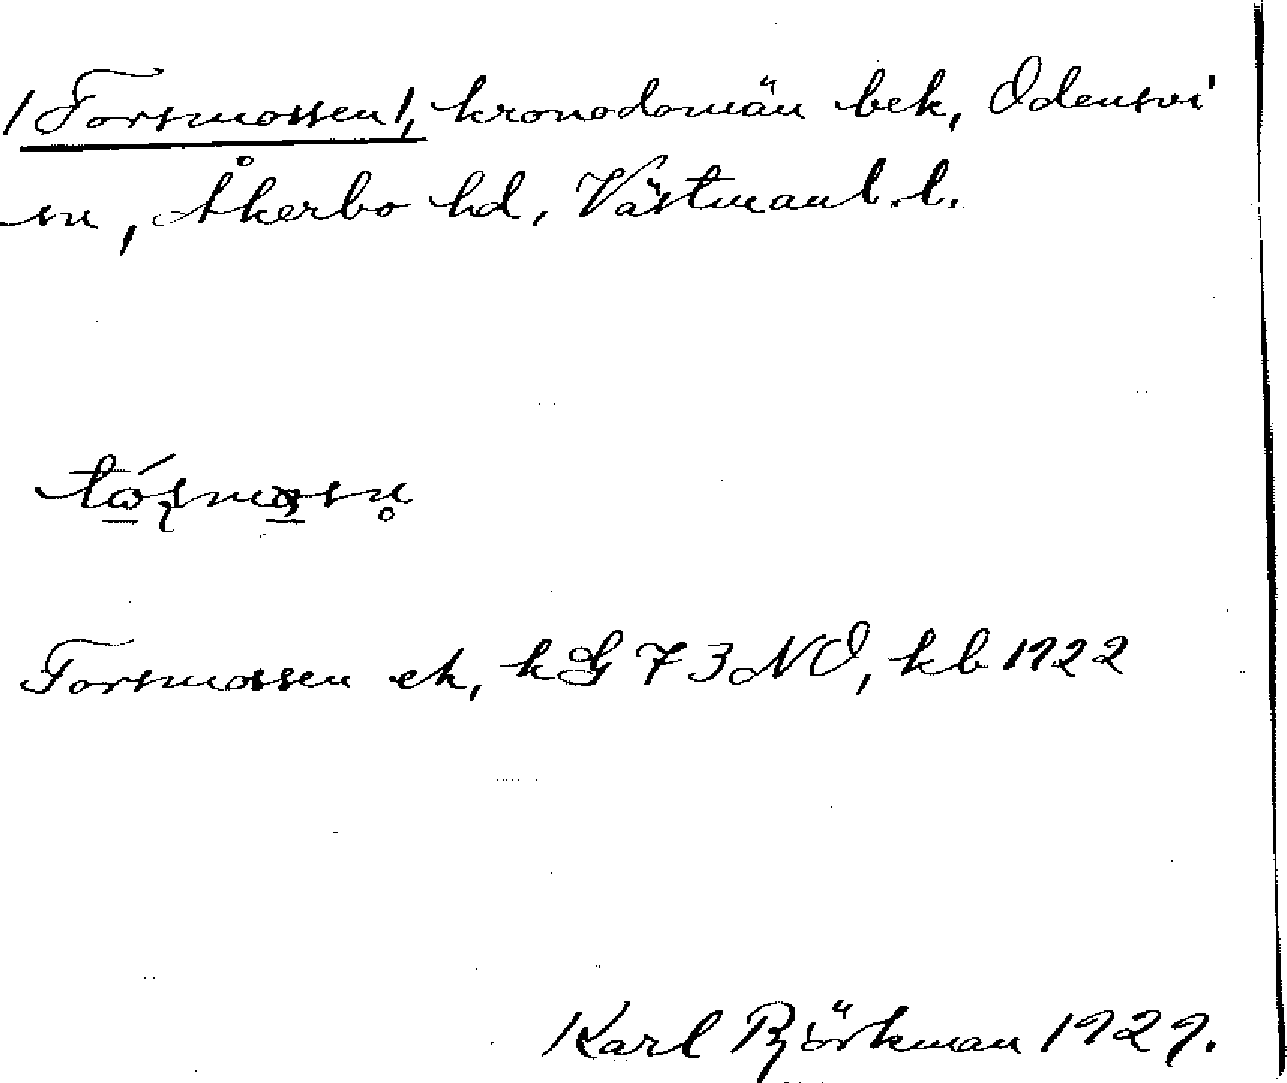 [Torsmossen], kronodomän bek, Odensvi
sn, Åkerbo hd, Västmanl. l.
Torsmossen ek, kG 73NO, kb 1922
Karl Björkman 1929.